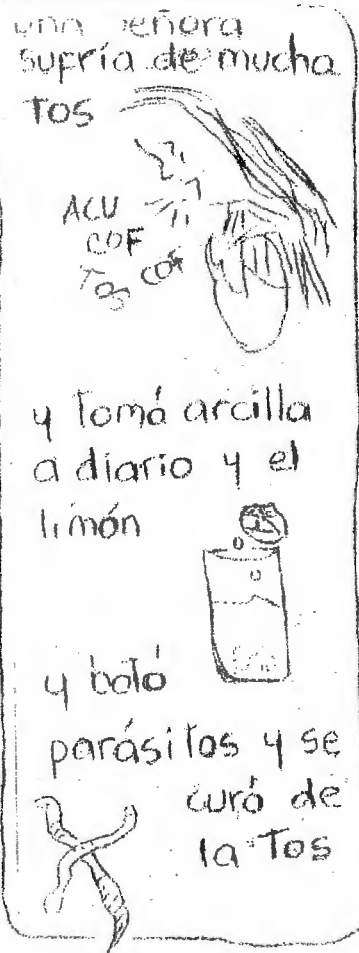 una señora
sufría de mucha
Tos
ACU
COF
Tos cof
y tomó arcilla
a diario y el
limón
y botó
parásitos y se
curó de
la Tos